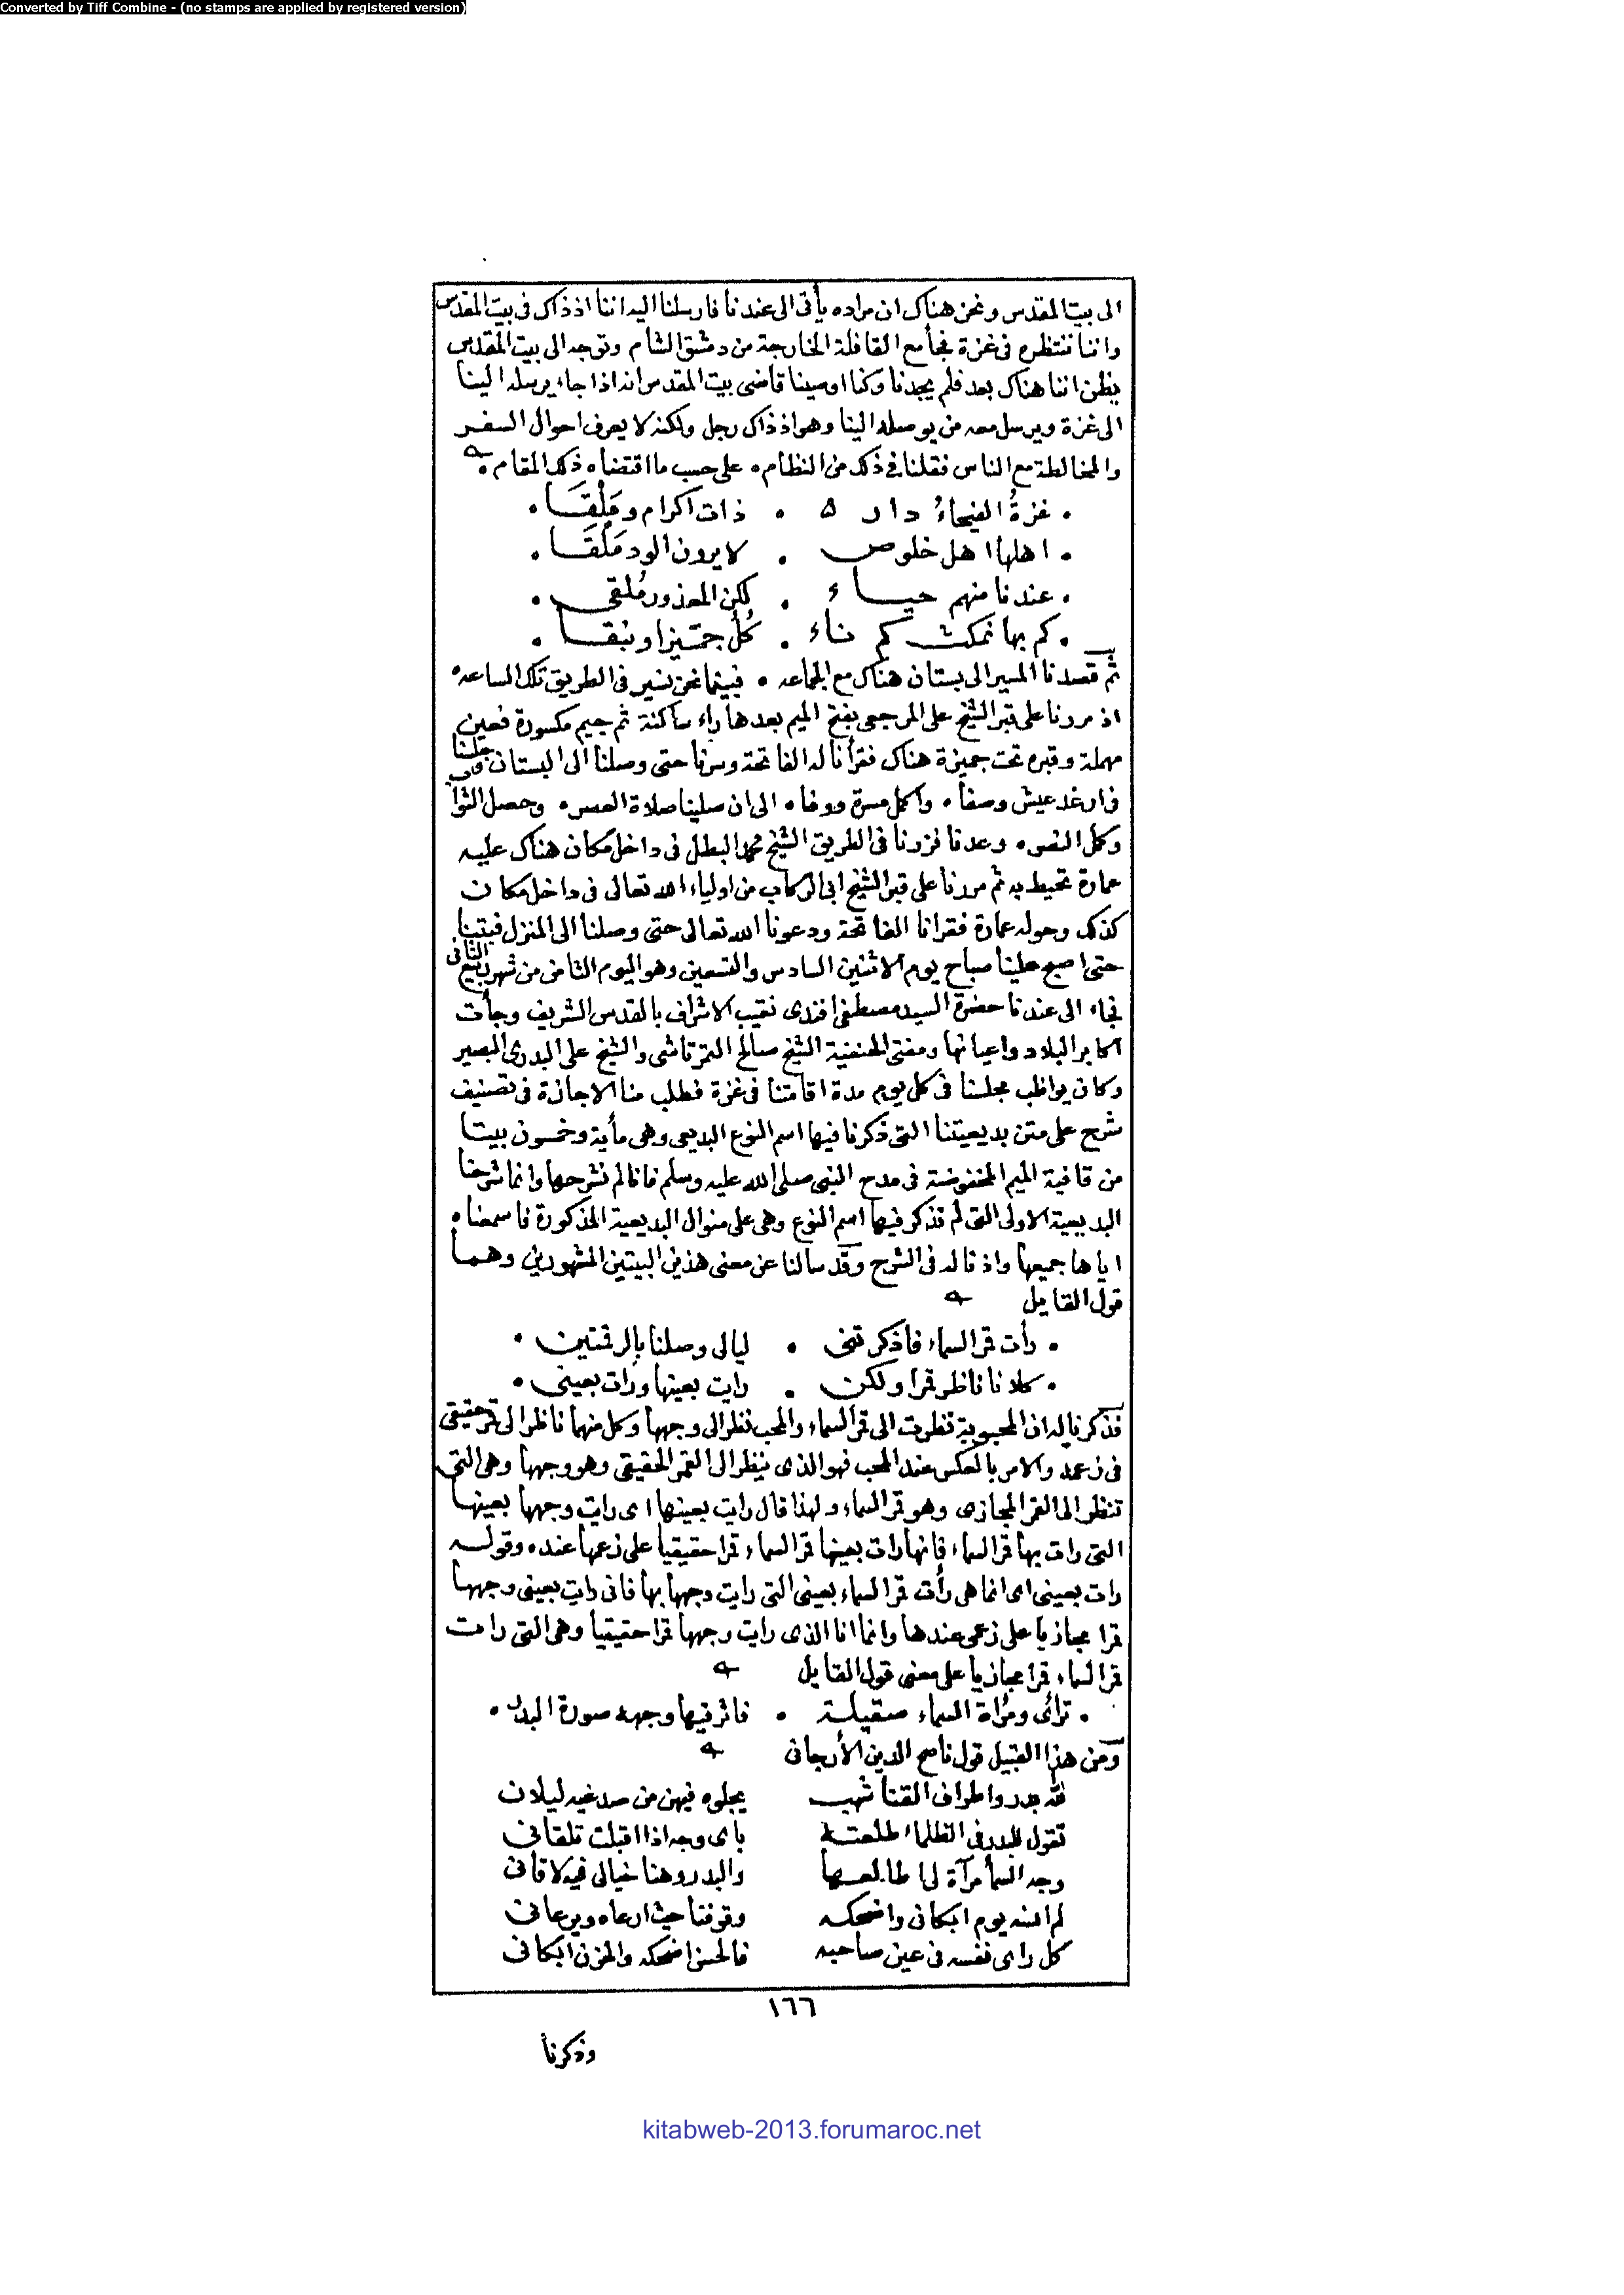 Converted by Tiff Combine - (no stamps are applied by registered version)
الى بيت المقدس ونحن هناك ان مراده يأتى الى عندنا فارسلنا اليه اننا اذ ذاك فى بيت المقدس
واننا ننتظره فى غزة فجأ مع القافلة الخارجة من دمشق الشام وتوجه الى بيت المقدس
يظن اننا هناك بعد فلم يجدنا وكنا اوصينا قاضى بيت المقدس انه اذا جاء يرسله الينا
الى غزة ويرسل معه من يوصله الينا وهو اذ ذاك رجل ولكنه لا يعرف احوال السفر
والمخالطة مع الناس فقلنا فى ذلك من النظام ٠ على حسب ما اقتضاه ذلك المقام ٠
٠ غزةُ الفيحاءُ دار ٥ ٠ ذات اكرام ومَلْقَا ٠
٠ اهلها اهل خلوص ٠ لا يرون الود مَلَقَا ٠
٠ عندنا منهم حياء ٠ لكن المعذور مُلقى ٠
٠ كم بها نمكث كم ناء ٠ كُلُ جمّيزا ونبقا ٠
ثم قصدنا المسير الى بستان هناك مع الجماعه ٠ فبينما نحن نسير فى الطريق تلك الساعه ٠
اذ مررنا على قبر الشيخ على المرجعى بفتح الميم بعدها راء ساكنة ثم جيم مكسورة فعين
مهملة وقبره تحت جميزة هناك فقرأنا له الفاتحة وسرنا حتى وصلنا الى البستان وجلسنا
فى ارغد عيش وصفأ ٠ واكمل مسرة ووفاء ٠ الى ان صلينا صلاة العصر ٠ وحصل الثواب
وكمل النصر ٠ وعدنا فزرنا فى الطريق الشيخ محمد البطل فى داخل مكان هناك عليه
عمارة تحيط به ثم مررنا على قبر الشيخ ابى الركاب من اولياء الله تعالى فى داخل مكان
كذلك وحوله عمارة فقرانا الفاتحة ودعونا الله تعالى حتى وصلنا الى المنزل فبتنا
حتى اصبح علينا صباح يوم الاثنين السادس والتسعين وهو اليوم الثامن من شهر ربيع الثانى
فجاء الى عندنا حضرة السيد مصطفى افندى نقيب الاشراف بالقدس الشريف وجأت
اكابر البلاد واعيانها ومفتى الحنفية الشيخ صالح التمرتاشى والشيخ على البدرى البصير
وكان يواظب مجلسنا فى كل يوم مدة اقامتنا فى غزة فطلب منا الاجازة فى تصنيف
شرح على متن بديعيتنا التى ذكرنا فيها اسم النوع البديعى وهى مأية وخمسون بيتا
من قافية الميم المخفوضة فى مدح النبى صلى الله عليه وسلم فانا لم نشرحها وانما شرحنا
البديعية الاولى التى لم نذكر فيها اسم النوع وهى على منوال البديعية المذكورة فاسمعناه
اياها جميعها واذنا له فى الشرح وقد سالنا عن معنى هذين البيتين المشهورين وهما
قول القايل
٠ رأت قمر السماء فاذكرتنى ٠ ليالى وصلنا بالرقمتين ٠
٠ كلانا ناظر قمرا ولكن ٠ رايت بعينها ورات بعينى ٠
فذكرنا له ان المحبوبة نظرت الى قمر السماء والمحب نظر الى وجهها وكل منهما ناظر الى قمر حقيقى
فى زعمه والامر بالعكس عند المحب فهو الذى ينظر الى القمر الحقيقى وهو وجهها وهى التى
تنظر الى القمر المجازى وهو قمر السماء ولهذا قال رايت بعينها اى رايت وجهها بعينها
التى رات بها قمر السماء فانها رات بعينها قمر السماء قمرا حقيقيا على زعمها عنده وقوله
رات بعينى اى انما هى رأت قمر السماء بعينى التى رايت وجهها بها فانى رايت بعينى وجهها
قمرا مجازيا على زعمى عندها وانما انا الذى رايت وجهها قمرا حقيقيا وهى التى رات
قمر السماء قمرا مجازيا على معنى قول القايل
٠ ترأى ومرأة السماء صقيلة ٠ فاثر فيها وجهه صورة البدر ٠
ومن هذا القبيل قول ناصح الدين الأرجانى
لله بدر واطراف القنا شهب يجلوه فيهن من صدغيه ليلان
تقول للبدر فى الظلماء طلعته باى وجه اذا اقبلت تلقانى
وجه السمأ مرآة لى اطالعها والبدر وهنا خيالى فيه لاقانى
لم انسه يوم ابكانى واضحكه وقوفنا حيث ارعاه ويرعانى
كل راى نفسه فى عين صاحبه فالحسن اضحكه والحزن ابكانى
١٦٦
وذكرنا
kitabweb-2013.forumaroc.net